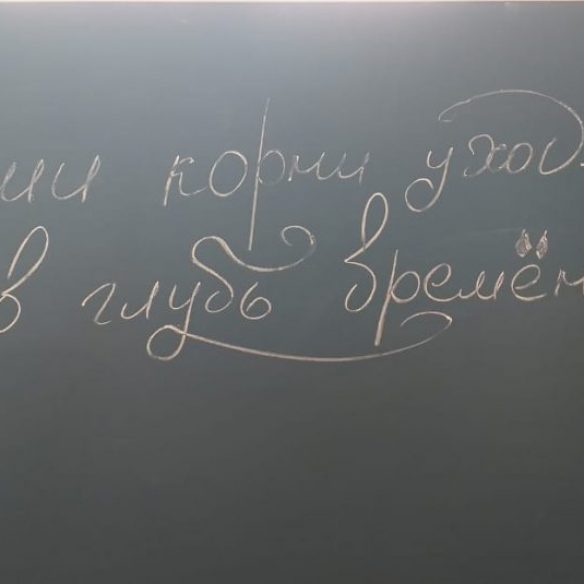 ши корни уход
в глубь времён